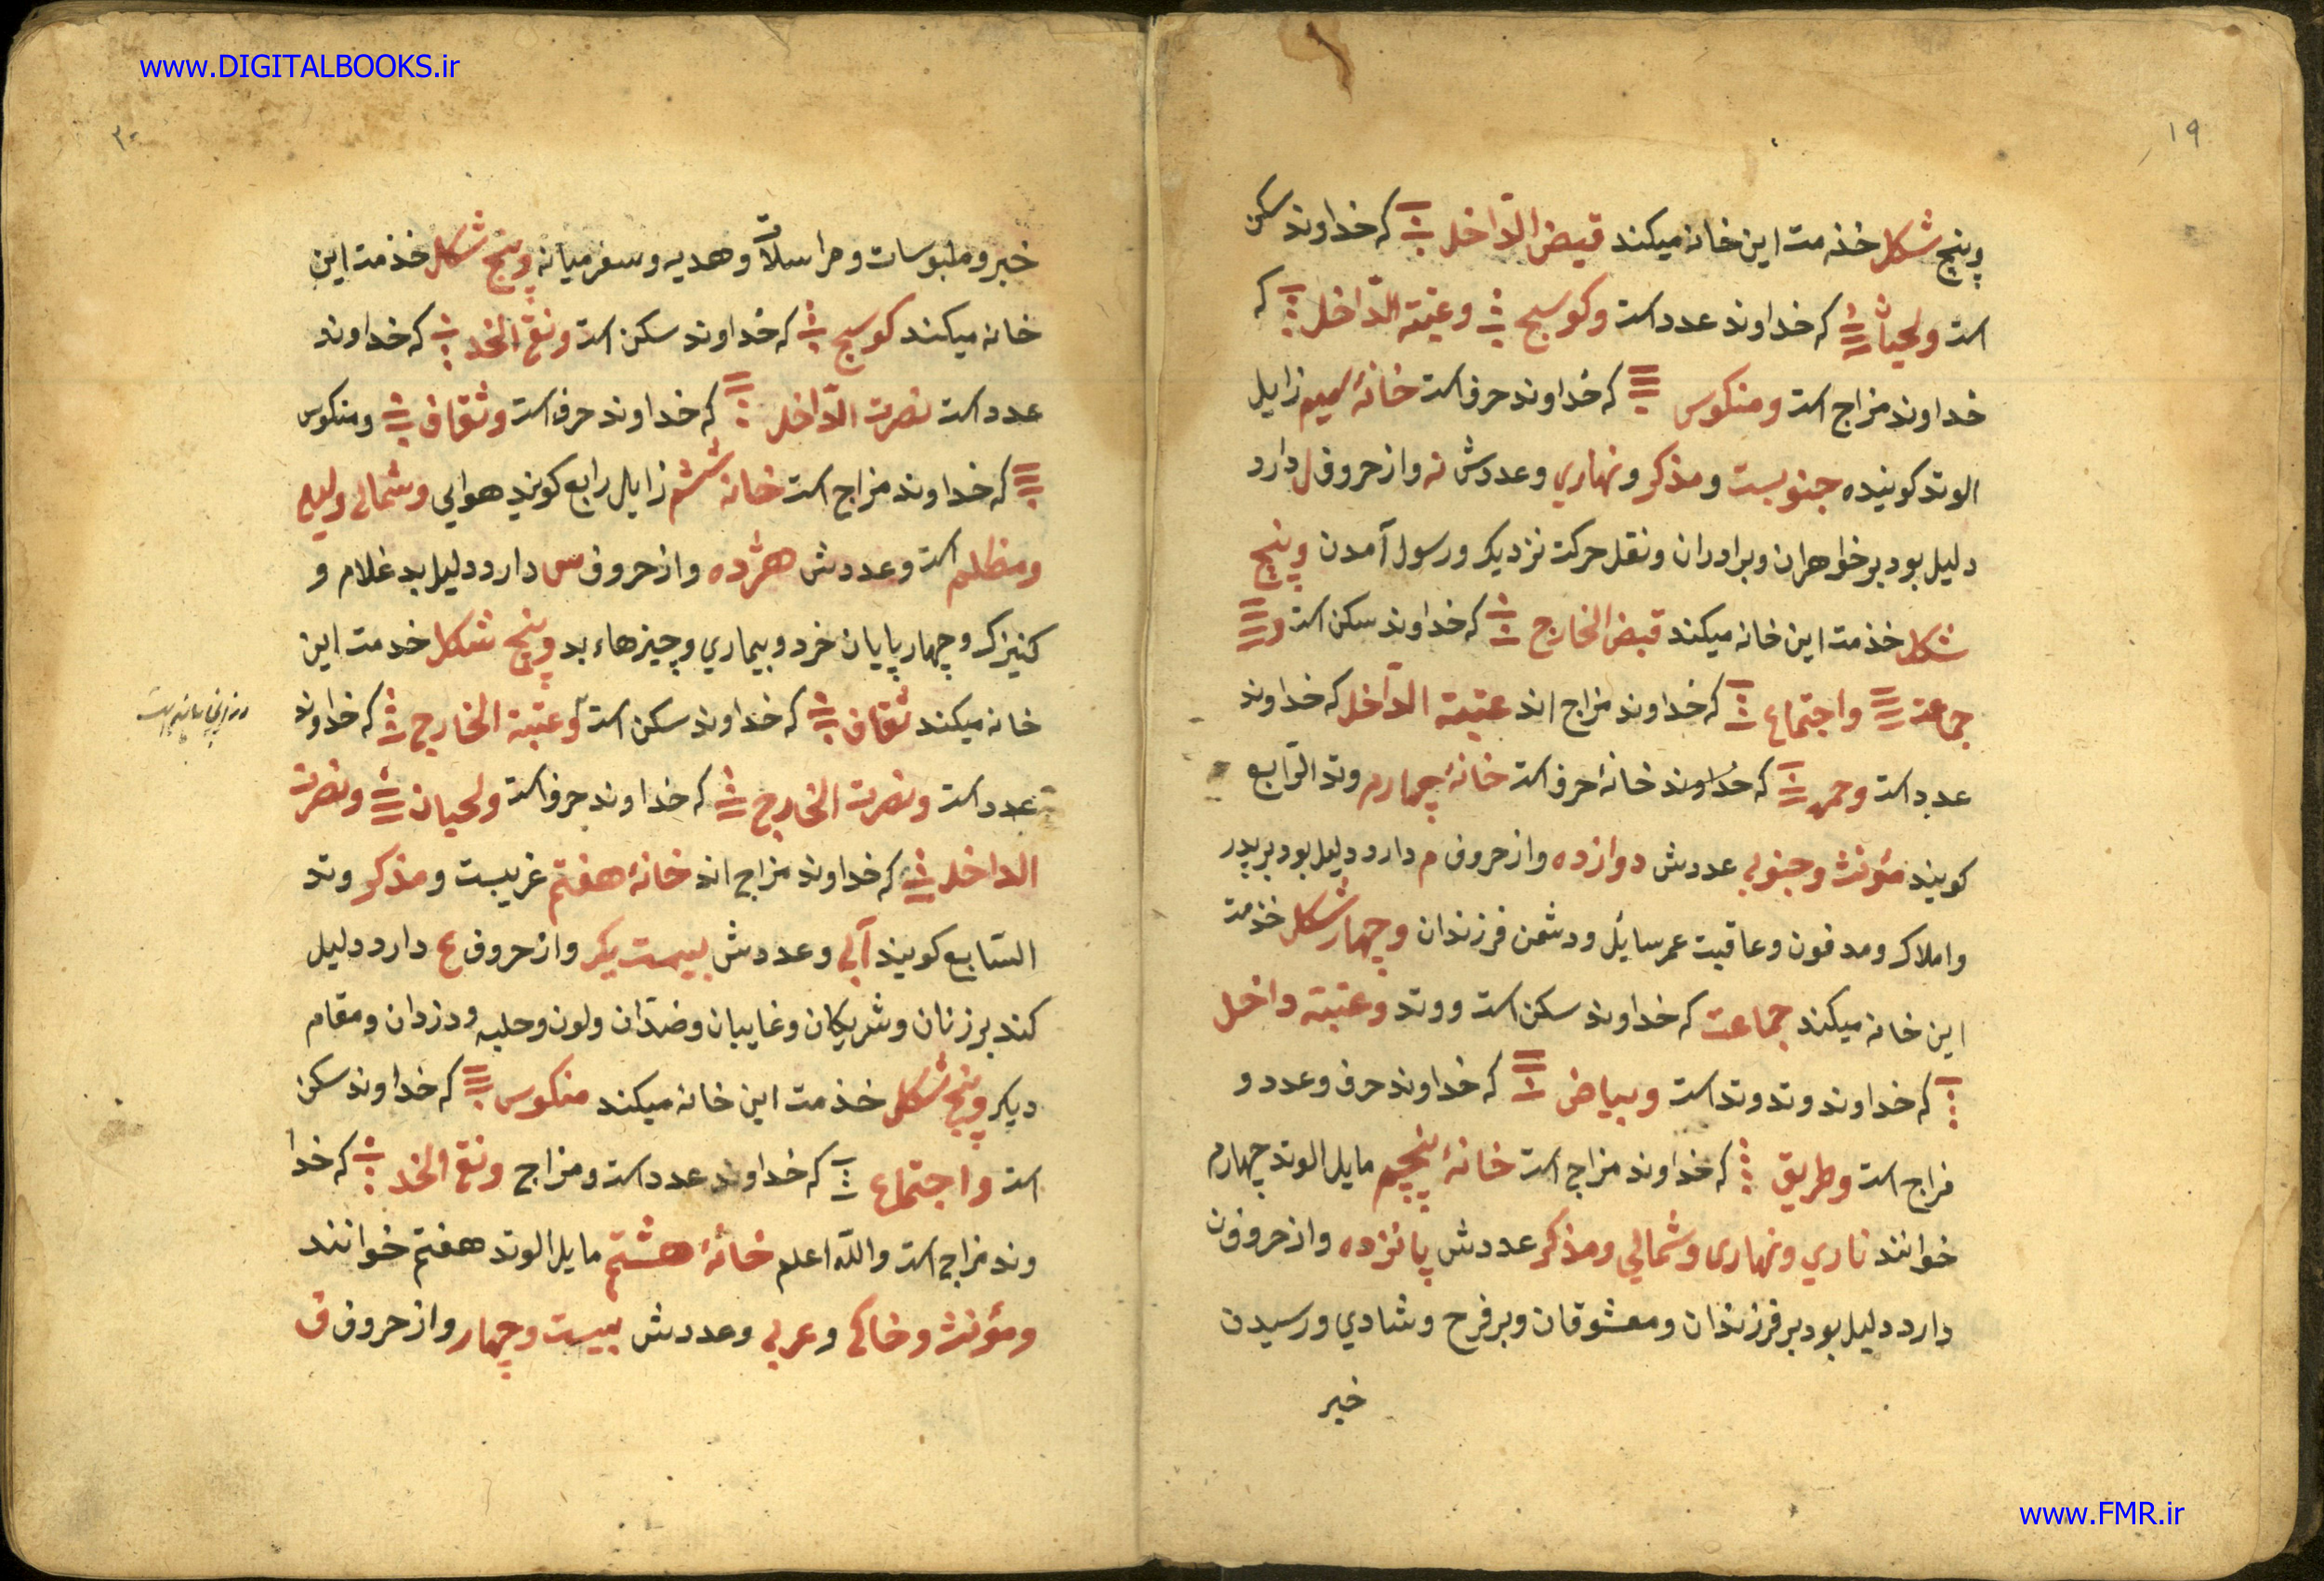 www.DIGITALBOOKS.ir
۱۹
وپنج شکل خذمت این خانه میکند قبض الدّاخل که خداوند سکن
است ولحیان که خداوند عدد است وکوسج وعتبته الدّاخل که
خداوند مزاج است ومنکوس که خداوند حرف است خانهٔ سیم زایل
الوتد کوینده جنوبیست ومذکر ونهاري وعددش نه واز حروف ل دارد
دلیل بود بر خواهران وبرادران ونقل حرکت نزدیک ورسول آمدن وپنج
شکل خذمت این خانه میکند قبض الخارج که خداوند سکن است و
جماعت واجتماع که خداوند مزاج اند عتبته الدّاخل که خداوند
عدد است وحمره که خداوند خانهٔ حرف است خانهٔ چهارم وتد الرّابع
کویند مؤنث وجنوبي عددش دوازده واز حروف م دارد دلیل بود بر پدر
واملاک ومدفون وعاقبت عمر سایل ودشمن فرزندان وچهار شکل خذمت
این خانه میکند جماعت که خداوند سکن است ووتد وعتبته داخل
که خداوند وتد وتد است وبیاض که خداوند حرف وعدد و
مزاج است وطریق که خداوند مزاج است خانهٔ پنچم مایل الوتد چهارم
خوانند ناري ونهاری وشمالي ومذکر عددش پانزده واز حروف ن
دارد دلیل بود بر فرزندان ومعشوقان وبر فرح وشادي ورسیدن
خبر
۲۰
خبر وملبوسات ومراسلات وهدیه وسفر میانه وپنج شکل خذمت این
خانه میکند کوسج که خداوند سکن است ونقی الخد که خداوند
عدد است نصرت الدّاخل که خداوند حرف است وثقاف ومنکوس
که خداوند مزاج است خانه ششم زایل رابع کویند هوایي وشمالي ولیلي
ومظلم است وعددش هژده واز حروف س دارد دلیل بد غلام و
کنیزک وچهارپایان خرد وبیماري وچیزهاء بد وپنج شکل خدمت این
خانه میکند ثقاف که خداوند سکن است وعتبته الخارج که خداوند
عدد است ونصرت الخارج که خداوند حرف است ولحیان ونصرت
الداخل که خداوند مزاج اند خانهٔ هفتم غربیست ومذکر وتد
السّابع کویند آبي وعددش بیست یک واز حروف ع دارد دلیل
کند بر زنان وشریکان وغایبان وضدّان ولون وحلیه ودزدان ومقام
دیکر وپنج شکل خذمت این خانه میکند منکوس که خداوند سکن
است واجتماع که خداوند عدد است ومزاج ونقی الخد که خدا
وند مزاج است والله اعلم خانهٔ هشتم مایل الوتد هفتم خوانند
ومؤنث وخاکي وعربي وعددش بیست وچهار واز حروف ف
www.FMR.ir